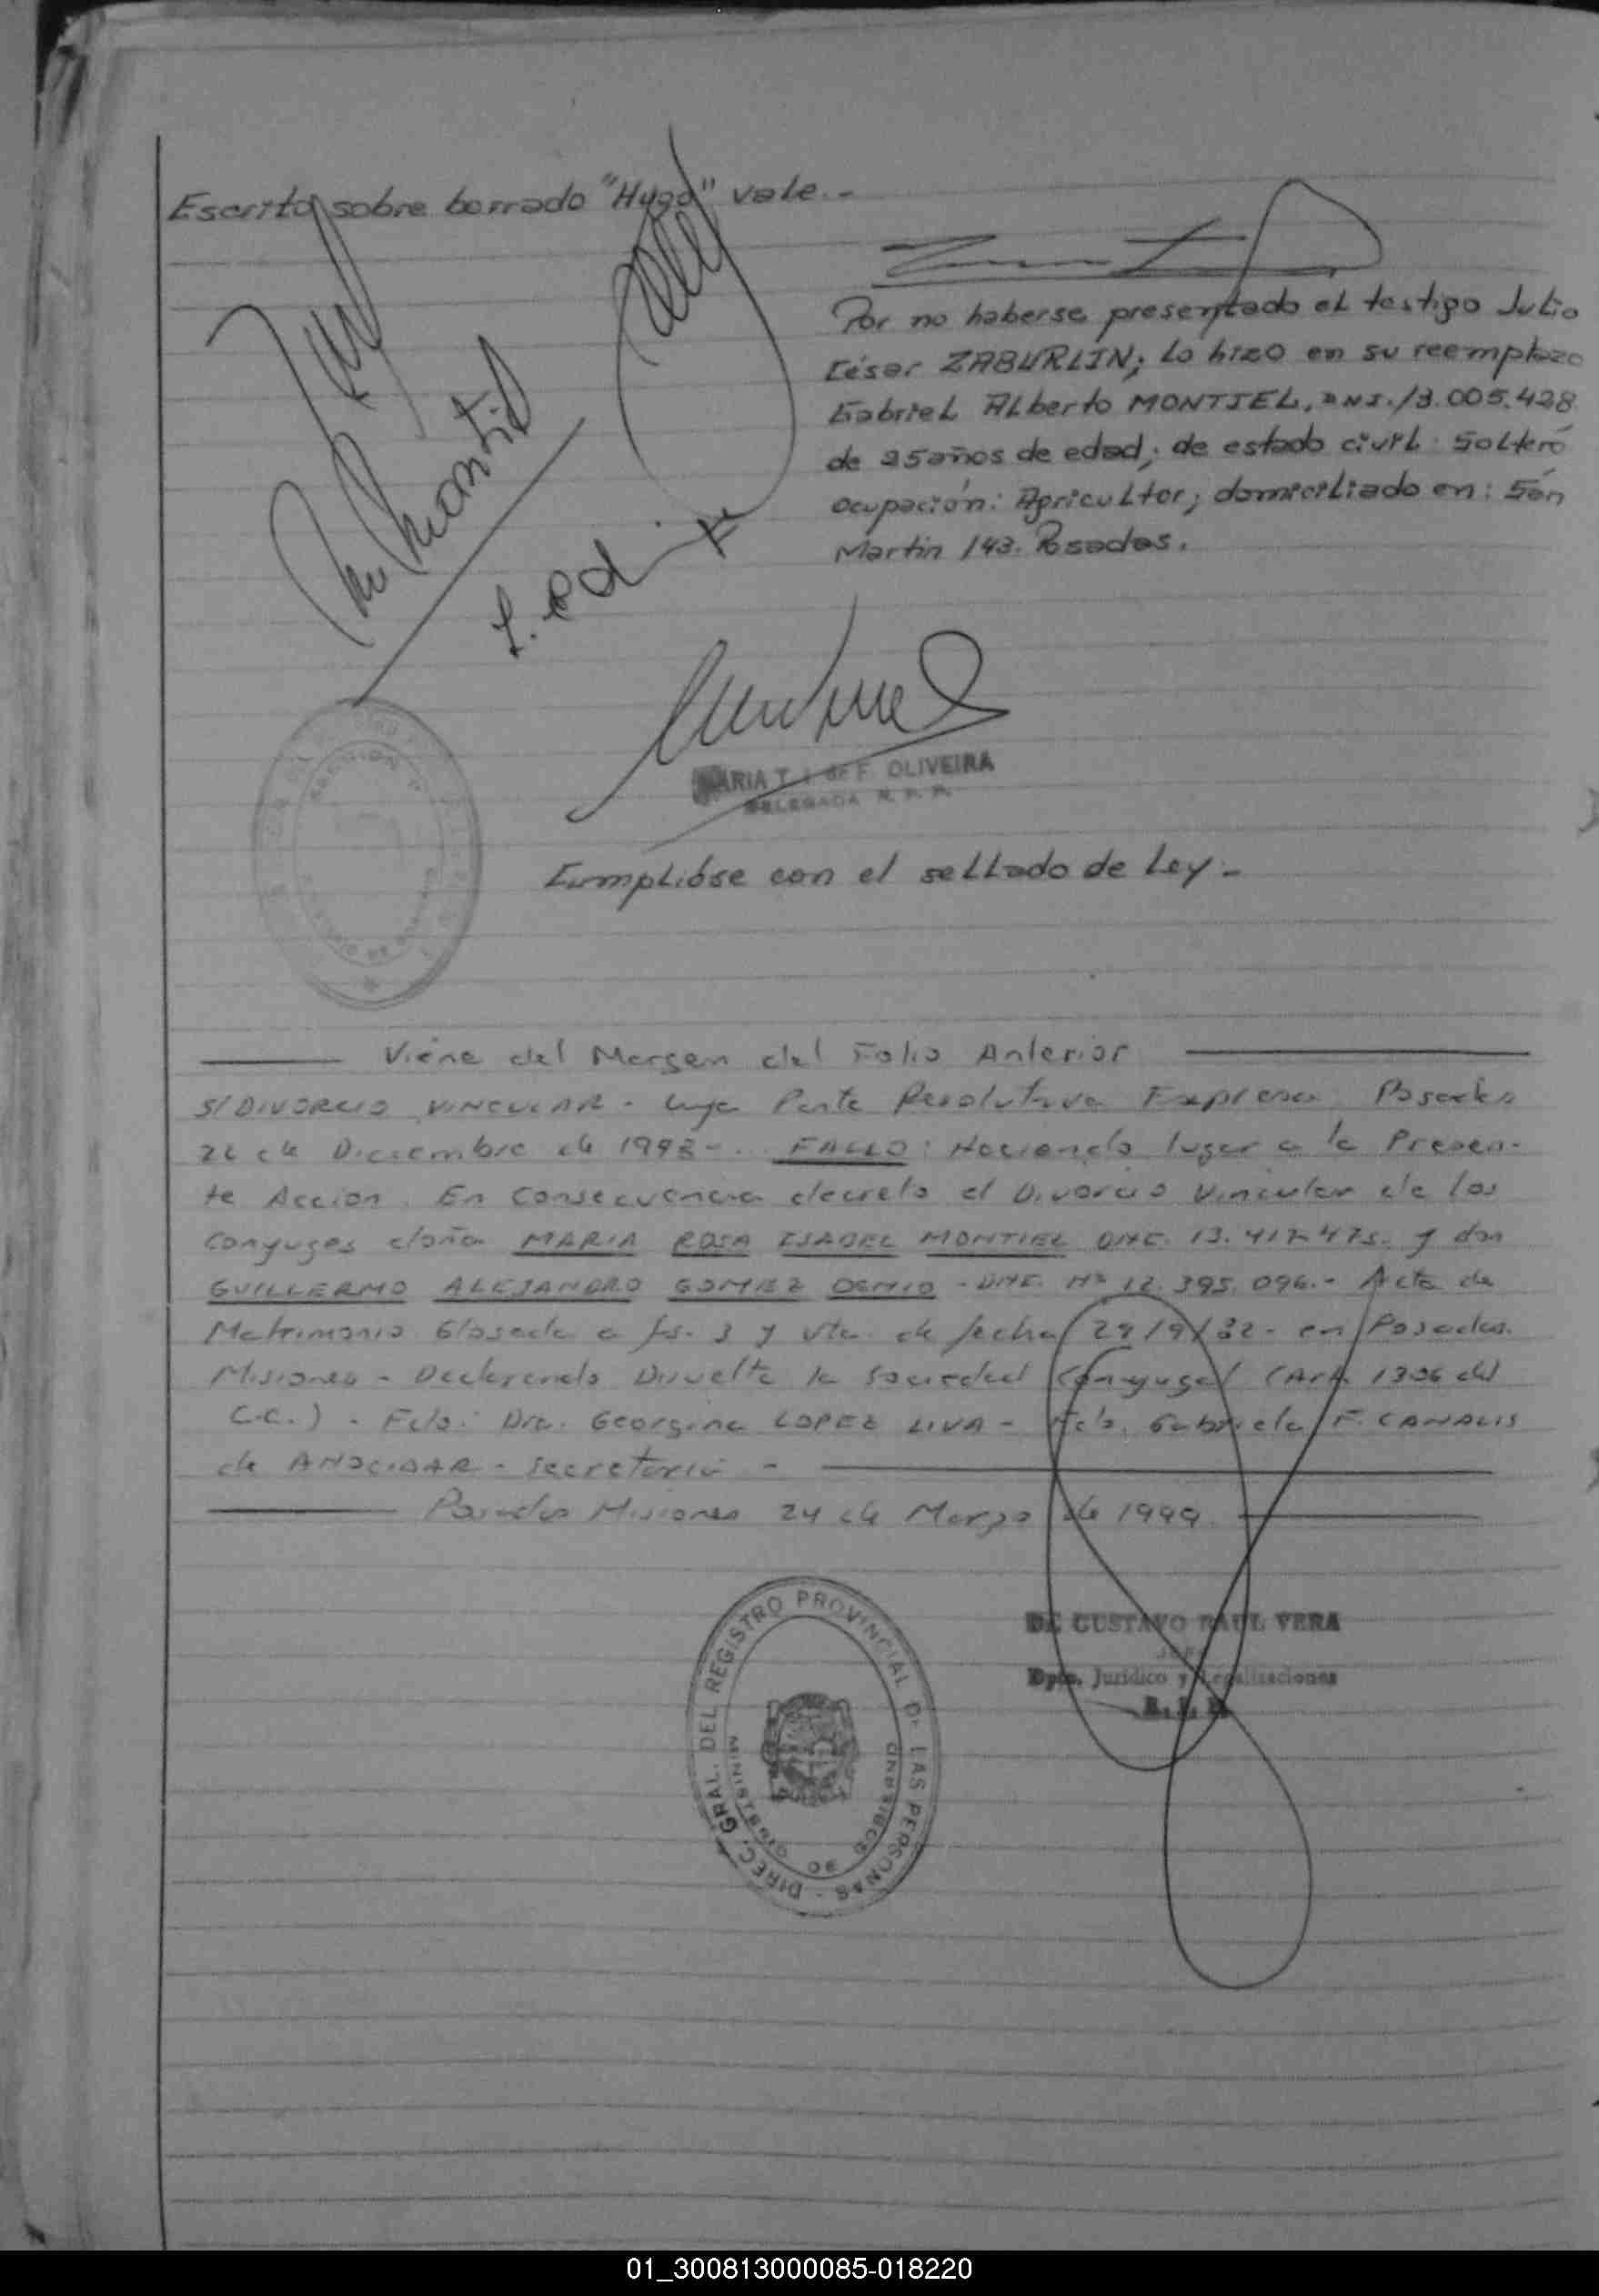 Escrito sobre borrado "Hugo" vale.-
Por no haberse presentado el testigo Julio
César ZABURLIN; lo hizo en su reemplazo
Gabriel Alberto MONTIEL, DNI. 13.005.428
de 25 años de edad; de estado civil: Soltero
ocupación: Agricultor; domiciliado en: San
Martin 143. Posadas.
L.
MARIA T. DE F. OLIVEIRA
DELEGADA R. P. P.
Cumplióse con el sellado de Ley.-
Viene del Margen del Folio Anterior
S/DIVORCIO VINCULAR - cuya Parte Resolutiva Expresa: Posadas
de Diciembre de 1998-.. FALLO: Haciendo lugar a la Presen-
te Accion. En Consecuencia decreto el Divorcio Vincular de los
Conyuges doña MARIA ROSA ISABEL MONTIEL DNI. 13.417.475. y don
GUILLERMO ALEJANDRO GOMEZ - DNI. Nº 12.395.096.- Acta de
Matrimonio Glosada a fs. 3 y vta. de fecha 29/9/82- en Posadas.
Misiones - Declarando Disuelta la Sociedad Conyugal (Art. 1306 del
C.C.) - Fdo: Dra. Georgina LOPEZ LIVA - Fdo. Gabriela F. CANALIS
de - Secretaria -
Posadas Misiones 24 de Marzo de 1999.
GUSTAVO RAUL VERA
JEFE
Dpto. Jurídico y Legalizaciones
DIREC. GRAL. DEL REGISTRO PROVINCIAL DE LAS PERSONAS
MINISTERIO DE GOBIERNO
01_300813000085-018220